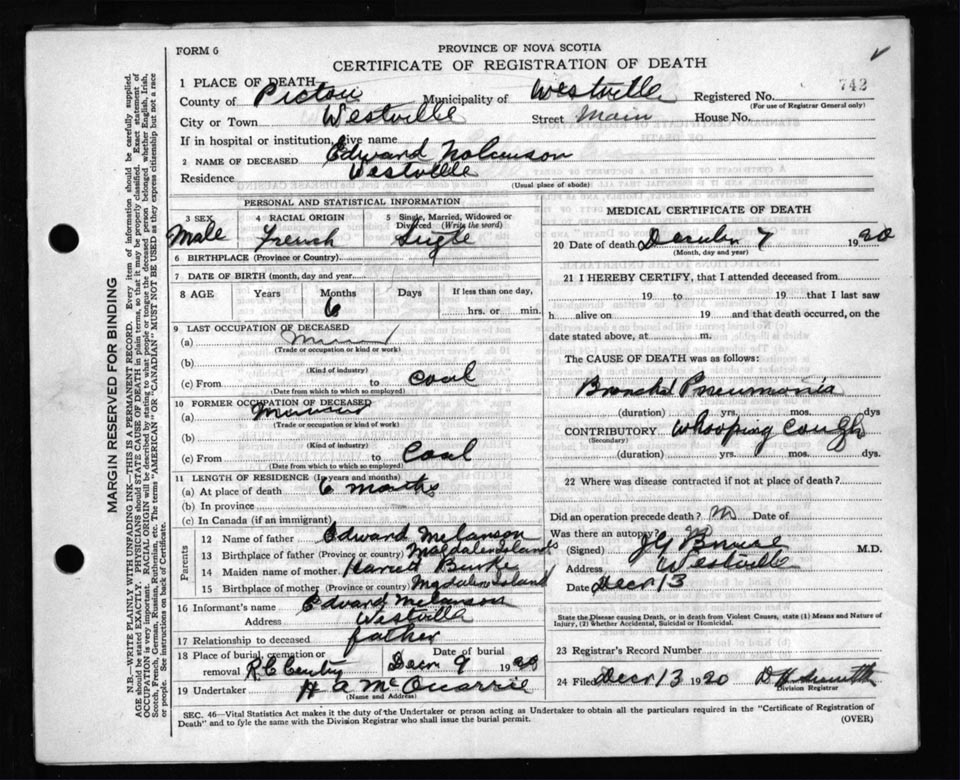 FORM 6
PROVINCE OF NOVA SCOTIA
CERTIFICATE OF REGISTRATION OF DEATH
1 PLACE OF DEATH
742
County of Pictou Municipality of Westville Registered No.
(For use of Registrar General only)
City or Town Westville Street Main House No.
If in hospital or institution, give name
2 NAME OF DECEASED Edward
Residence Westville
(Usual place of abode)
PERSONAL AND STATISTICAL INFORMATION
3 SEX 4 RACIAL ORIGIN 5 Single, Married, Widowed or Divorced (Write the word)
Male French Single
6 BIRTHPLACE (Province or Country)
7 DATE OF BIRTH (month, day and year)
8 AGE Years Months Days If less than one day,
6 hrs. or min.
9 LAST OCCUPATION OF DECEASED
(a)
(Trade or occupation or kind or work)
(b)
(Kind of industry)
(c) From to Coal
(Date from which to which so employed)
10 FORMER OCCUPATION OF DECEASED
(a)
(Trade or occupation or kind of work)
(b)
(Kind of industry)
(c) From to Coal
(Date from which to which so employed)
11 LENGTH OF RESIDENCE (In years and months)
(a) At place of death 6 months
(b) In province
(c) In Canada (if an immigrant)
Parents
12 Name of father Edward Melanson
13 Birthplace of father (Province or country) Magdalen Islands
14 Maiden name of mother Harriett Burke
15 Birthplace of mother (Province or country) Magdalen Island
16 Informant's name Edward Melanson
Address Westville
17 Relationship to deceased father
18 Place of burial, cremation or removal R.C. Date of burial Decr 9 19
19 Undertaker H A McQuarrie
(Name and Address)
MEDICAL CERTIFICATE OF DEATH
20 Date of death December 7 1920
(Month, day and year)
21 I HEREBY CERTIFY, that I attended deceased from
19 to 19 that I last saw
h alive on 19 and that death occurred, on the
date stated above, at m.
The CAUSE OF DEATH was as follows:
Bronchial Pneumonia
(duration) yrs. mos. dys
CONTRIBUTORY Whooping Cough
(Secondary)
(duration) yrs. mos. dys.
22 Where was disease contracted if not at place of death?
Did an operation precede death? Date of
Was there an autopsy?
(Signed) M.D.
Address Westville
Date Decr 13
State the Disease causing Death, or in death from Violent Causes, state (1) Means and Nature of Injury, (2) whether Accidental, Suicidal or Homicidal.
23 Registrar's Record Number
24 Filed Decr 13 1920
Division Registrar
SEC. 46—Vital Statistics Act makes it the duty of the Undertaker or person acting as Undertaker to obtain all the particulars required in the "Certificate of Registration of
Death" and to fyle the same with the Division Registrar who shall issue the burial permit.
(OVER)
MARGIN RESERVED FOR BINDING
N.B.—WRITE PLAINLY WITH UNFADING INK—THIS IS A PERMANENT RECORD. Every item of information should be carefully supplied.
AGE should be stated EXACTLY. PHYSICIANS should STATE CAUSE OF DEATH in plain terms, so that it may be properly classified. Exact statement of
OCCUPATION is very important. RACIAL ORIGIN will be described by stating to what people or tongue the deceased person belonged, whether English, Irish,
Scotch, French, German, Russian, Ruthenian, etc. The terms "AMERICAN" OR "CANADIAN" MUST NOT BE USED as they express citizenship but not a race
or people. See instructions on back of Certificate.